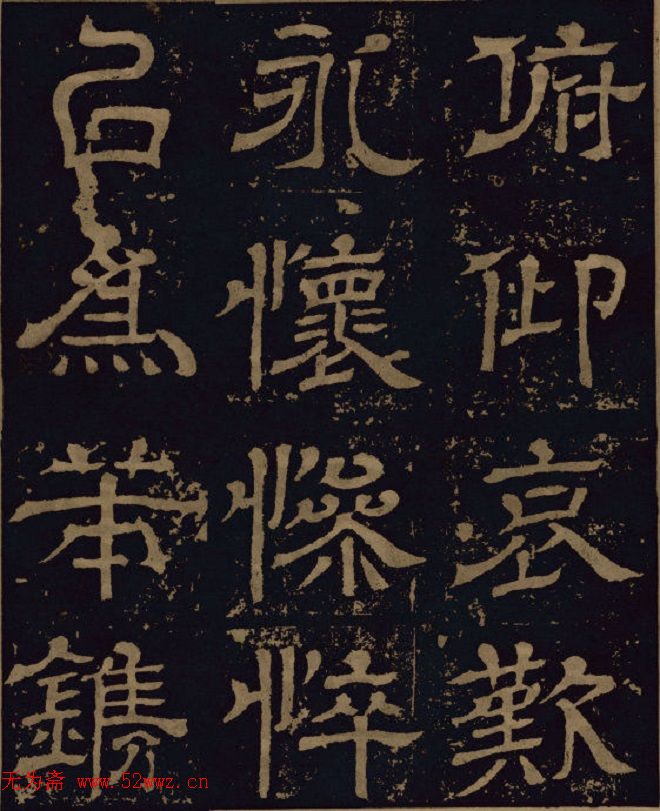 俯仰哀歎
永懷慘悴
㠯爲苯鐫
无为斋 www.52wwz.cn